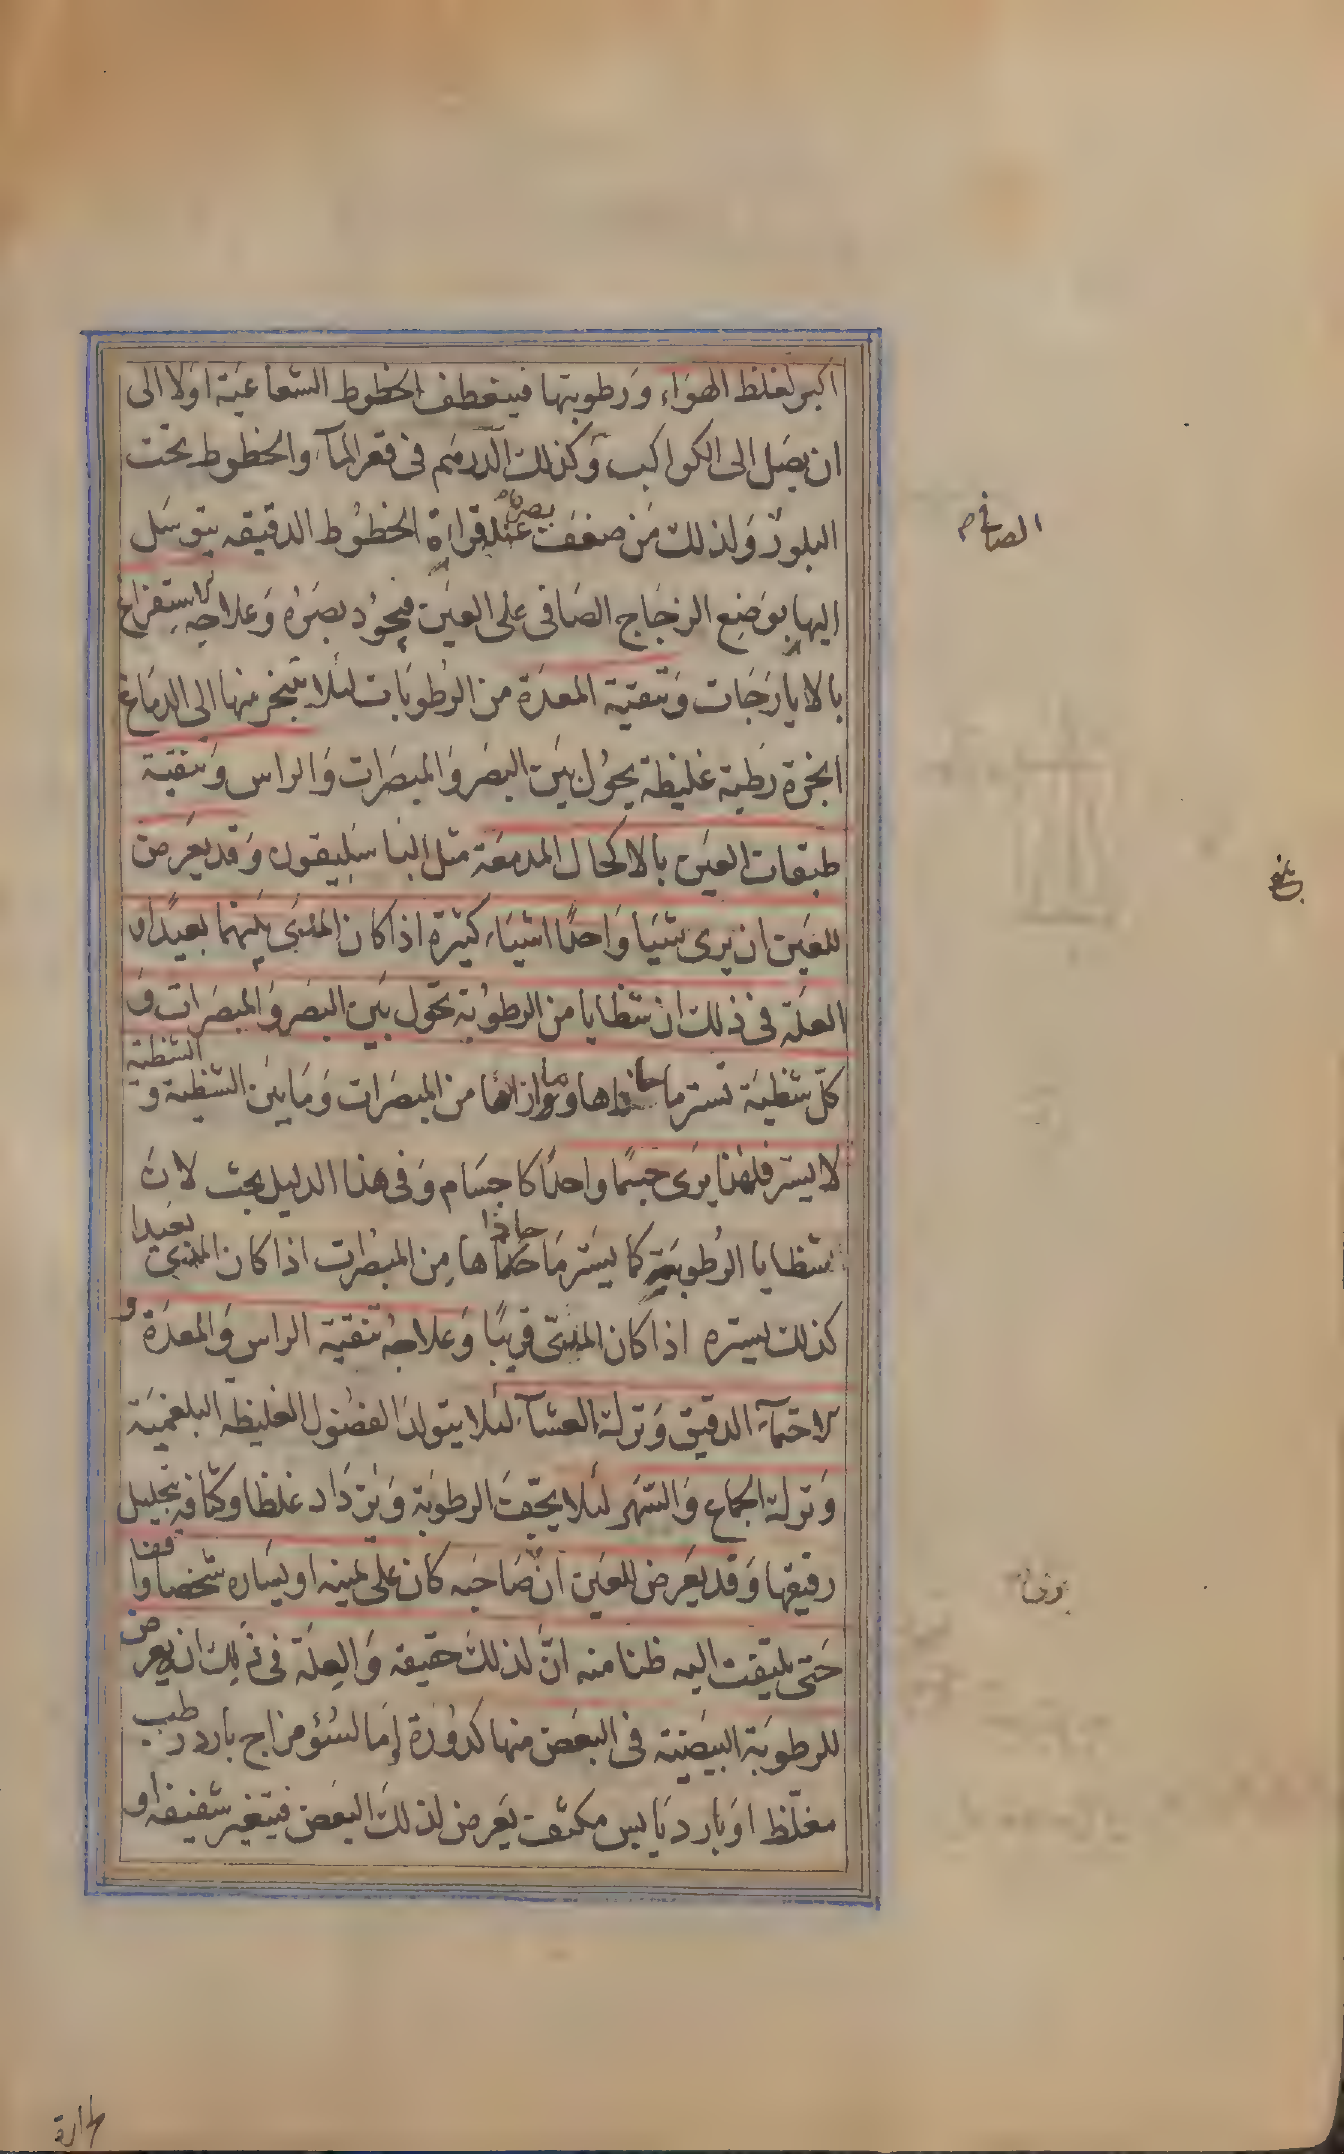 اكبر لغلظ الهوَاء وَرطوبتها فينعطف الخطوط الشعاعيَة اوَلا الى
ان يصَل الى الكواكب وَكذلك الدرهَم فى قعر المآء والخطوط تحت
البلورْ وَلذلك مَن ضعفَ بصره عند قراءة الخطُوط الدقيقه يتوسَل
اليها بوَضع الزجَاج الصَافى على العيَن فيجُود بصَرُه وَعلاجه الاستِفراغ
بالايارَجَات وَتنقيَة المعدَة من الرطُوبَات لئلا يتَبخر منها الى الدمَاغ
ابخرة رَطبة غليظة يحوُل بيَن البصَر وَالمبصَرات وَالراس وَتنقيَة
طبقات العيَن بالاكحال المدمعَة مثل الباسَليقون وَقد يعَرض
للعيَن ان يرى شيَا وَاحدًا اشياءَ كثيرَة اذا كان المرئى بَينهما بعيَدا و
العلَة فى ذلك ان شظايا من الرطُوبَة تحَول بيَن البصَر وَالمبصَرات وَ
كلّ شظيَة تسَتر ما حاذاها وما وازاها من المبصَرات وَمَا بيَن الشظيَة وَ الشظية
لا يستر فلهٰذا يَرَى جسمًا واحدًا كاجسَام وَفى هذا الدليل بحث لانَ
شظايا الرطُوبَة كما يسَتر مَا حاذاها مِن المبصُرات اذا كان المرئى بعَيدا
كذلك يسترہ اذا كان المرئى قريبًا وَعلاجهُ تنقيَة الراس وَالمعدَة و
الاحتمآء الدقيق وَترك العشآء لئلا يتولدَ الفضُول الغليظه البلغميَة
وَترك الجماع وَالسَهر لئلا يجّففَ الرطوبَة وَيزدَاد غلظا وكثافة بتحليل
رقيقها وَقد يعَرض للعيَن انّ صَاحبَه كان علَى يمينه او يسَاره شخصا واقفا
حَتى يلتفت اليه ظنا منه انَّ لذلكَ حقيقه وَالعِلَة فى ذَلِك ان يعرض
للرطوبَة البيضيَة فى البعَض منها كدوُرَة إمَا لسُؤ مزاج بارد رطب
مغلّظ اوَ بارد يَابس مكثف يَعرض لذلكَ البعَض فيتغير شفيفه او
الصافى م
بلغ
طارة